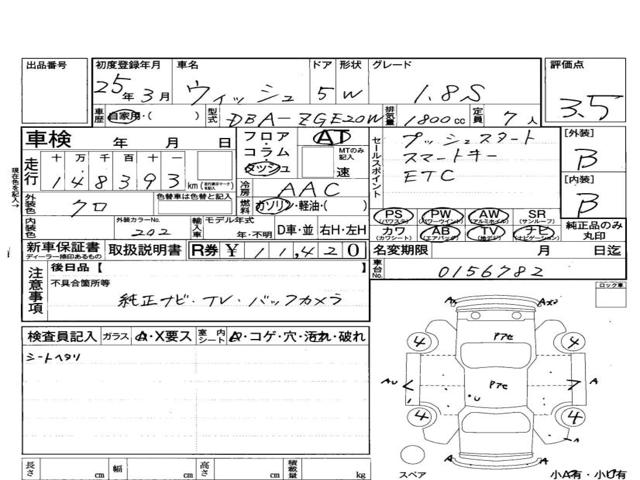 出品番号 初度登録年月 車名 ドア 形状 グレード 評価点
25年3月 ウィッシュ 5 W 1.8S 3.5
車歴 自家用・( ) 型式 DBA-ZGE20W 排気量 1800cc 定員 7人
車検 年 月 日 フロア・コラム・ダッシュ AT MTのみ記入 速
セールスポイント プッシュスタート
スマートキー
ETC
[外装] B
[内装] B
走行 十万千百十一
148393km
冷房 AAC
外装色 クロ 色替車は色替と記入 燃料 ガソリン・軽油・( )
内装色 外装カラーNo. 202 輸入車 モデル年式 年・不明 D車・並 右H・左H
PS (パワステ) PW (パワーウィンド) AW (アルミホイル) SR (サンルーフ)
カワ (カワシート) AB (エアバック) TV ナビ (ナビゲーション)
純正品のみ丸印
現在色を記入。
新車保証書 ディーラー捺印あるもの 取扱説明書 R券 ¥11,420 名変期限 月 日迄
注意事項 後日品【 】
不具合箇所等
純正ナビ・TV・バックカメラ
車台No. 0156782
ロック車
検査員記入 ガラス A・X要ス 室内シート A・コゲ・穴・汚れ・破れ
シートヘタリ
A
4 4
AU A
4 4
A
A
スペア 小A有・小U有
長さ cm 幅 cm 高さ cm 積載量 kg